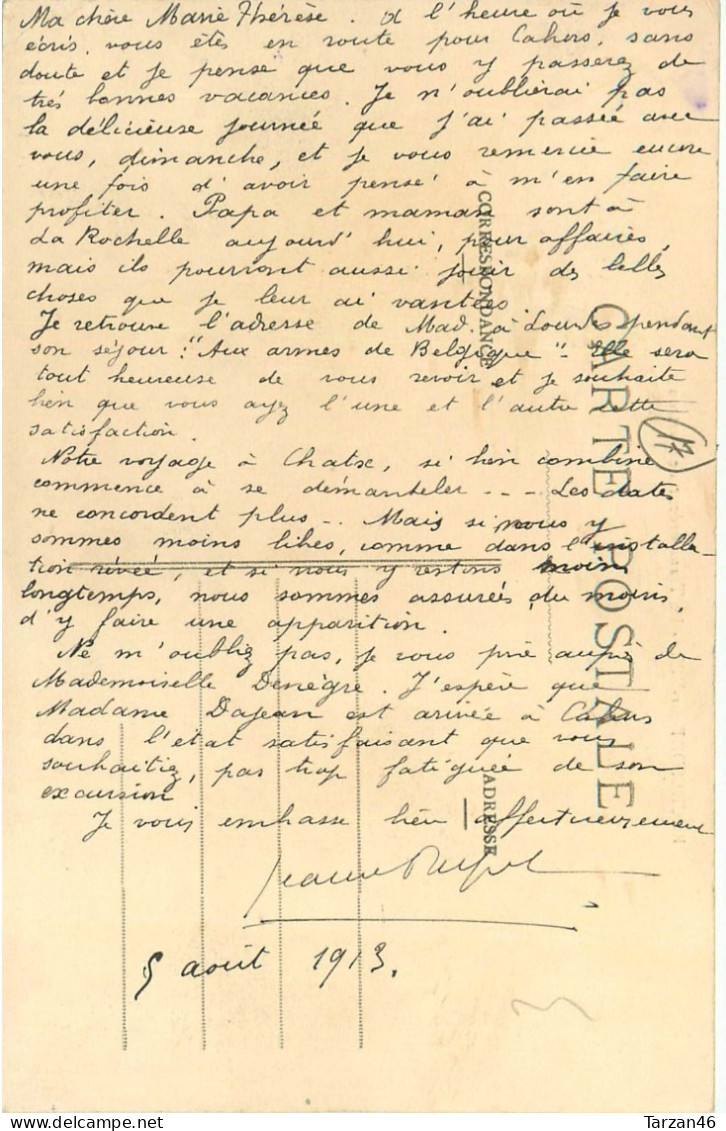 Ma chère Marie Thérèse. A l'heure où je vous
écris, vous êtes en route pour Cahors, sans
doute et je pense que vous y passerez de
très bonnes vacances. Je n'oublierai pas
la délicieuse journée que j'ai passée avec
vous, dimanche, et je vous remercie encore
une fois d'avoir pensé à m'en faire
profiter. Papa et maman sont à
La Rochelle aujourd'hui, pour affaires,
mais ils pourront aussi jouir des belles
choses que je leur ai vantées.
Je retrouve l'adresse de Mad. à Lourdes pendant
son séjour: "Aux armes de Belgique" - Elle sera
tout heureuse de vous revoir et je souhaite
bien que vous ayez l'une et l'autre cette
satisfaction.
Notre voyage à Chatx, si bien combiné
commence à se démanteler - - - Les dates
ne concordent plus - .. Mais si nous y
sommes moins libes, comme dans l'installa-
tion rêvée, et si nous y restons moins
longtemps, nous sommes assurées, du moins,
d'y faire une apparition.
Ne m'oubliez pas, je vous prie auprès de
Mademoiselle Denègre. J'espère que
Madame Dajean est arrivée à Cahors
dans l'état satisfaisant que vous
souhaitiez, pas trop fatiguée de son
excursion
Je vous embrasse bien affectueusement
Jeanne
5 août 1913.
CARTE POSTALE
CORRESPONDANCE
ADRESSE
17
Tarzan46